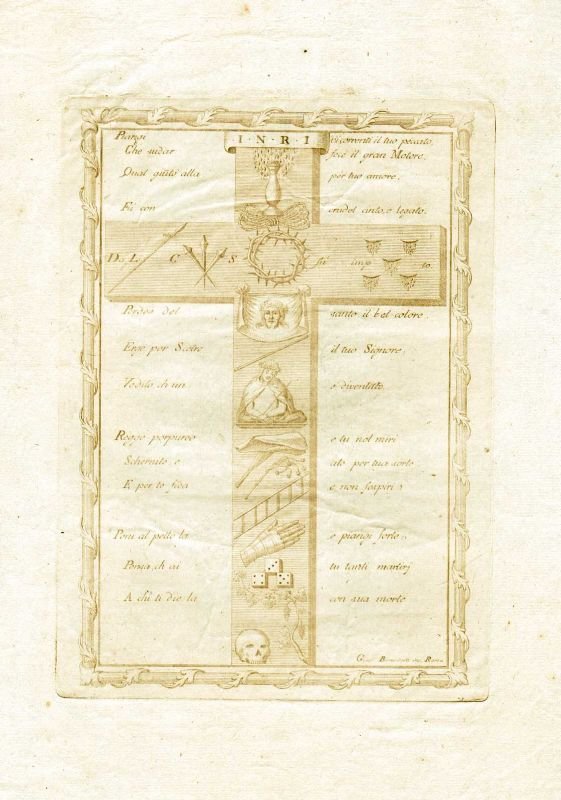 I · N · R · I
Piangi vi correnti il tuo peccato,
Che sudar fecè il gran Motore,
Qual guito alla per tuo amore.
Fù con crudel cinto, e legato.
Da Li C S sti imp to
Perdea del santo il bel colore.
Erge per Scetro il tuo Signore,
Vedilo ch'un e diventato.
Regge porpureo e tu nol miri
Schernito, e ato per tua sorte
E per te fida e non sospiri?
Poni al petto, la e piangi forte.
Pensa, ch'ai tu tanti martirj
A chi ti diè la con sua morte